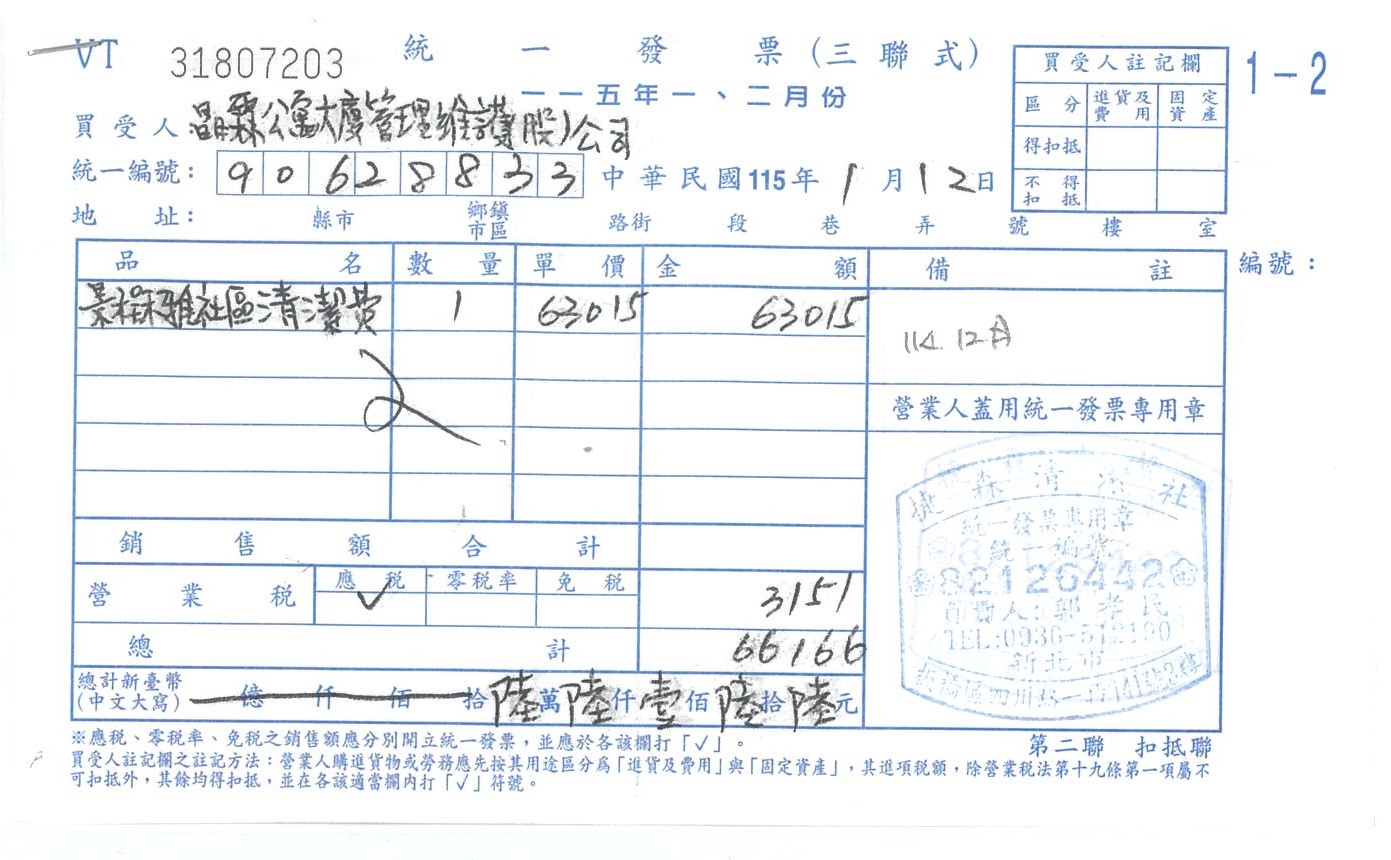 VT 31807203 統一發票(三聯式) 1-2
一一五年一、二月份
買受人: 公寓大廈管理維護股)公司
統一編號: 90628833 中華民國115年1月12日
地址: 縣市 鄉鎮市區 路街 段 巷 弄 號 樓 室
買受人註記欄
區分 進貨及費用 固定資產
得扣抵
不得扣抵
品名 數量 單價 金額 備註 編號:
社區清潔費 1 63015 63015 114.12月
營業人蓋用統一發票專用章
捷森清潔社
統一發票專用章
統一編號
82126442
負責人:郭孝民
新北市
銷售額合計
營業稅 應稅 ✓ 零稅率 免稅 3151
總計 66166
總計新臺幣(中文大寫) 億仟佰拾陸萬陸仟壹佰陸拾陸元
※應稅、零稅率、免稅之銷售額應分別開立統一發票,並應於各該欄打「✓」。
第二聯 扣抵聯
買受人註記欄之註記方法:營業人購進貨物或勞務應先按其用途區分為「進貨及費用」與「固定資產」,其進項稅額,除營業稅法第十九條第一項屬不
可扣抵外,其餘均得扣抵,並在各該適當欄內打「✓」符號。